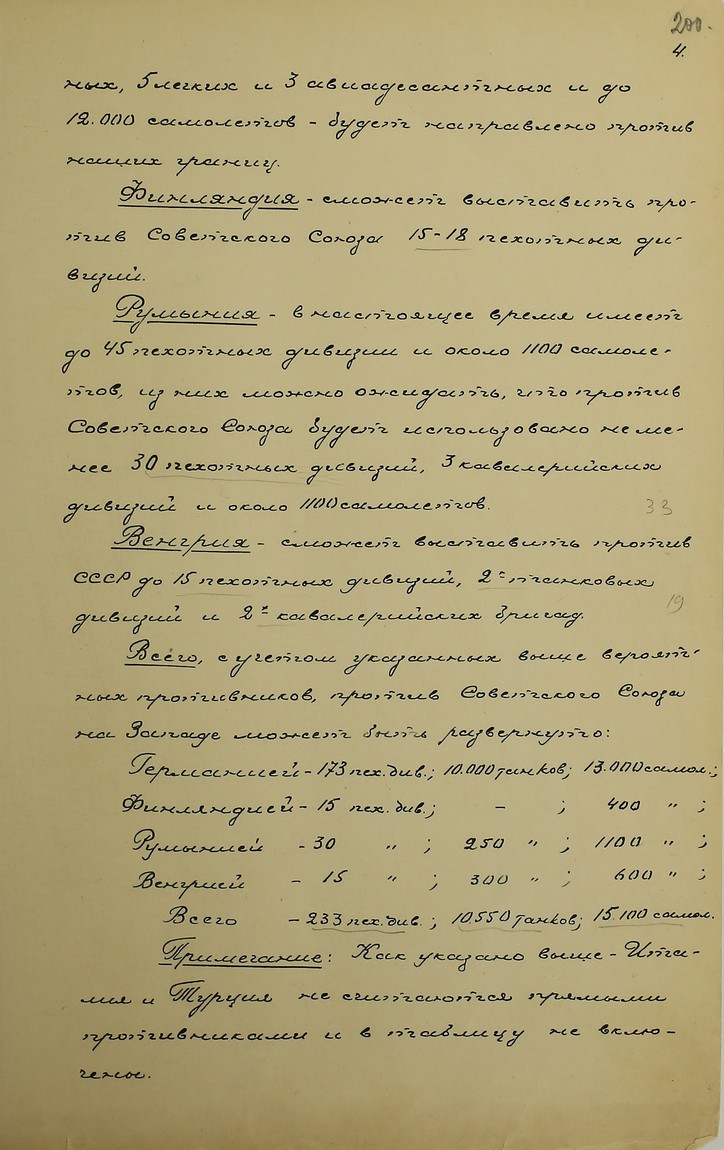 200.
4.
ных, 5 легких и 3 авиадесантных и до
12.000 самолетов - будет направлено против
наших границ.
Финляндия - сможет выставить про-
тив Советского Союза 15-18 пехотных ди-
визий.
Румыния - в настоящее время имеет
до 45 пехотных дивизий и около 1100 самоле-
тов, из них можно ожидать, что против
Советского Союза будет использовано не ме-
нее 30 пехотных дивизий, 3 кавалерийских
дивизий и около 1100 самолетов.
33
Венгрия - сможет выставить против
СССР до 15 пехотных дивизий, 2х танковых
19
дивизий и 2х кавалерийских бригад.
Всего, с учетом указанных выше вероят-
ных противников, против Советского Союза
на Западе может быть развернуто:
Германией - 173 пех. див.; 10.000 танков; 13.000 самол.;
Финляндией - 15 пех. див.; - ; 400 " ;
Румынией - 30 " ; 250 " ; 1100 " ;
Венгрией - 15 " ; 300 " ; 600 " ;
Всего - 233 пех. див. ; 10550 танков; 15.100 самол.
Примечание: Как указано выше - Ита-
лия и Турция не считаются прямыми
противниками и в таблицу не вклю-
чены.